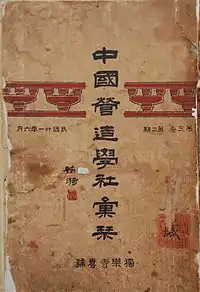 中國營造學社彙栞
第三卷 第二期
民國廿一年六月
獨樂寺專號